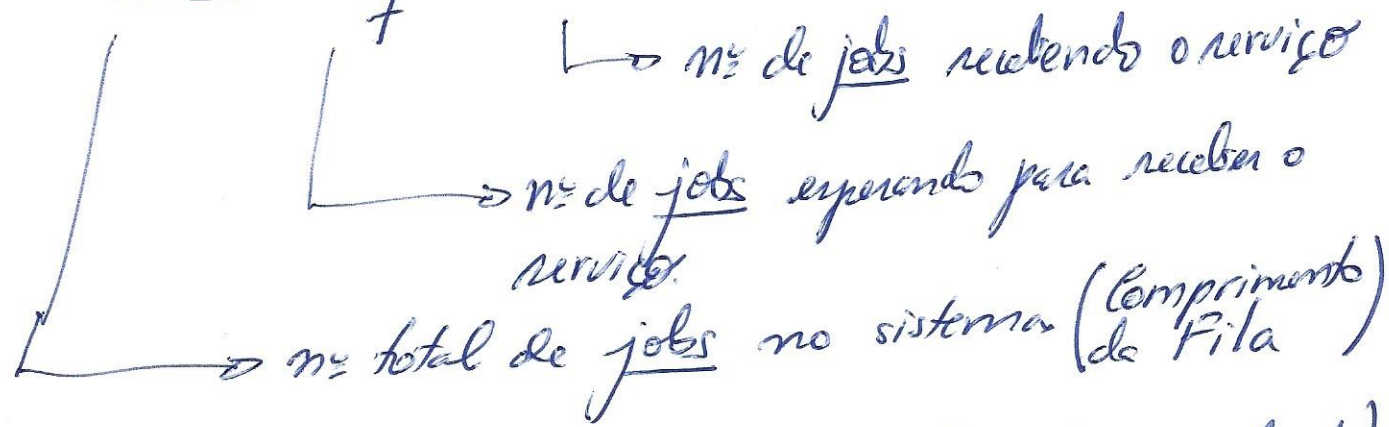 nº de jobs recebendo o serviço
nº de jobs esperando para receber o
serviço.
nº total de jobs no sistema (Comprimento
da Fila)